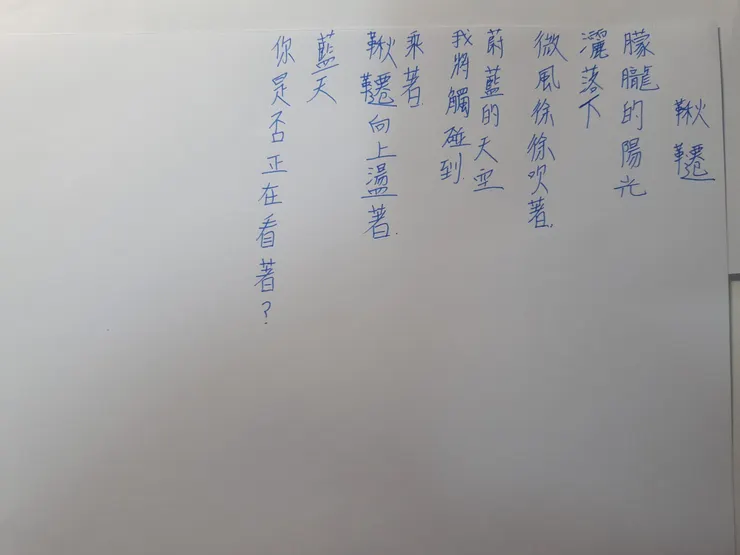 鞦韆
朦朧的陽光
灑落下
微風徐徐吹著.
蔚藍的天空
我將觸碰到.
乘著.
鞦韆向上盪著.
藍天
你是否正在看著?